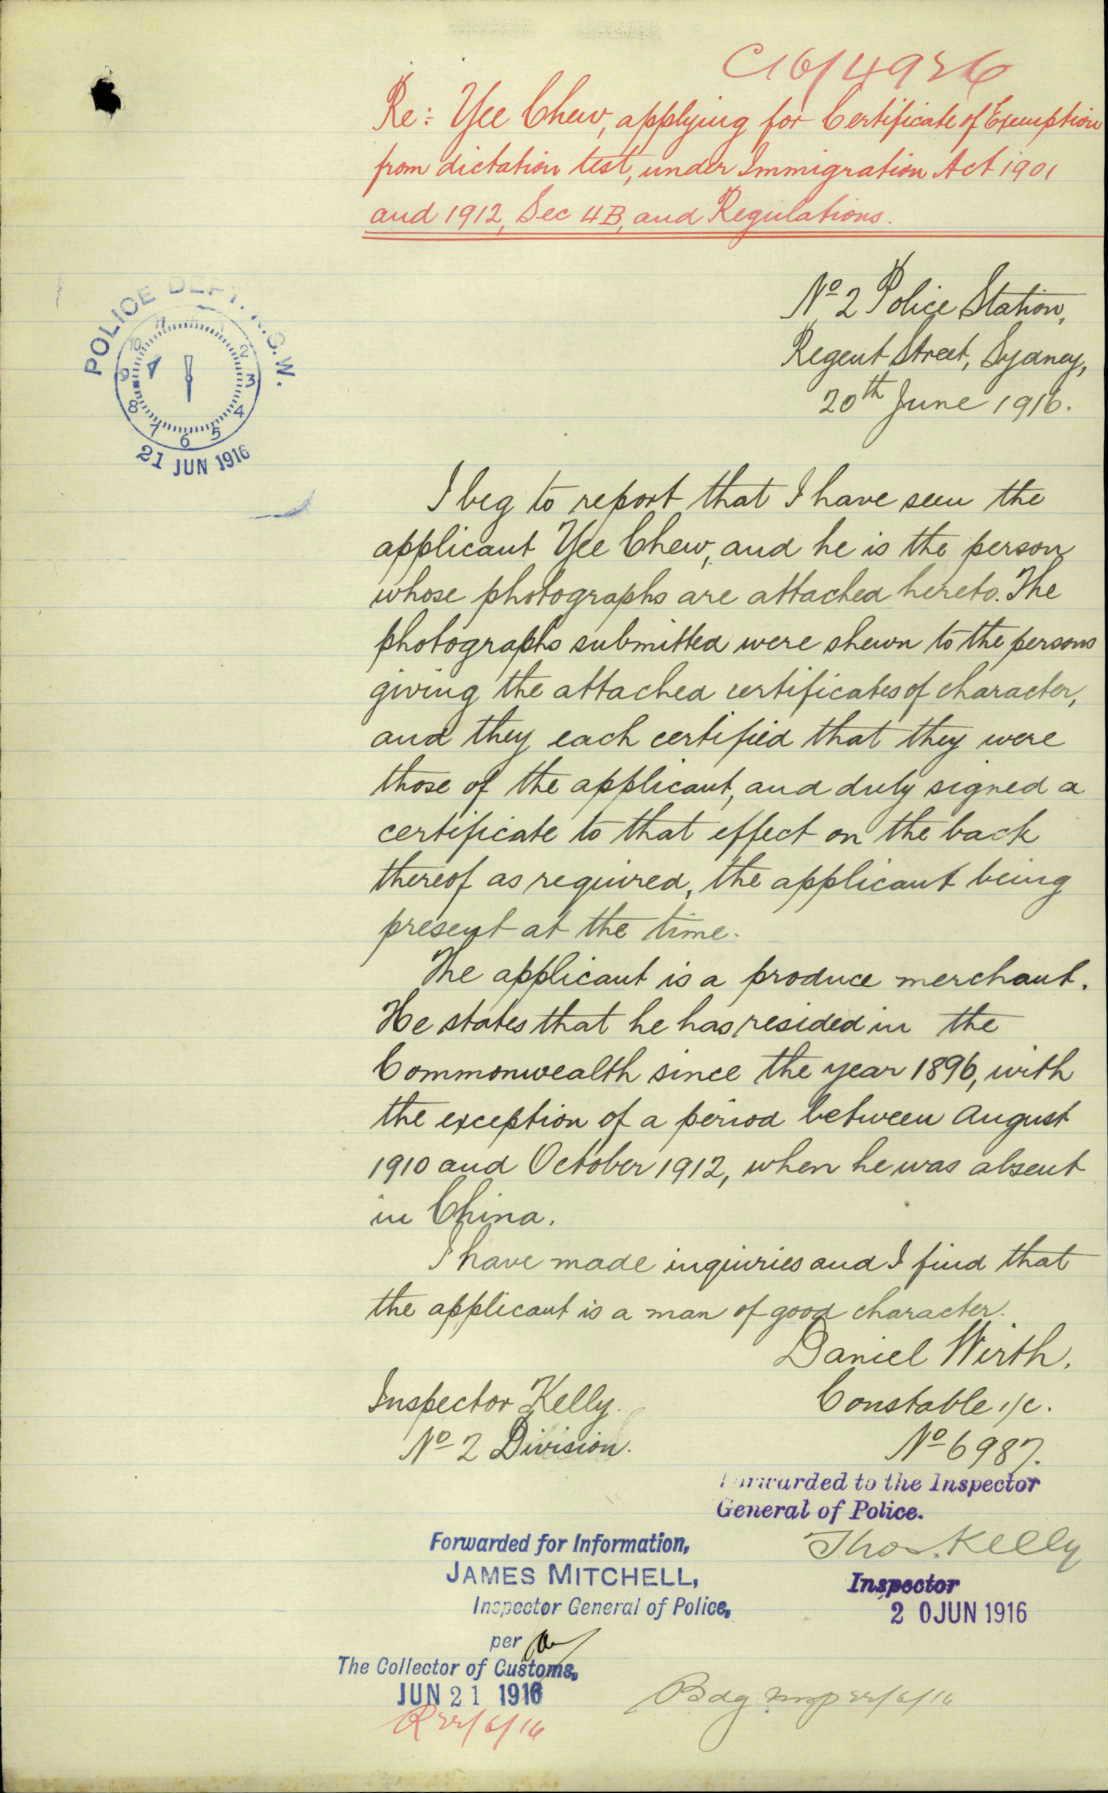 C16/4926
Re: Yee Chew, applying for Certificate of Exemption
from dictation test, under Immigration Act 1901
and 1912, Sec 4B, and Regulations.
No 2 Police Station,
Regent Street, Sydney,
20th June 1916.
POLICE DEPT. N.S.W.
2
3
4
5
6
7
8
9
10
11
21 JUN 1916
I beg to report that I have seen the
applicant Yee Chew, and he is the person
whose photographs are attached hereto. The
photographs submitted were shewn to the persons
giving the attached certificates of character,
and they each certified that they were
those of the applicant, and duly signed a
certificate to that effect on the back
thereof as required, the applicant being
present at the time.
The applicant is a produce merchant.
He states that he has resided in the
Commonwealth since the year 1896, with
the exception of a period between August
1910 and October 1912, when he was absent
in China.
I have made inquiries and I find that
the applicant is a man of good character.
Daniel Wirth.
Constable 1/c.
No 6987.
Inspector Kelly.
No 2 Division.
Forwarded to the Inspector
General of Police.
Thos. Kelly
Inspector
20 JUN 1916
Forwarded for Information,
JAMES MITCHELL,
Inspector General of Police,
per
The Collector of Customs,
JUN 21 1916
R 22/6/16
22/6/16